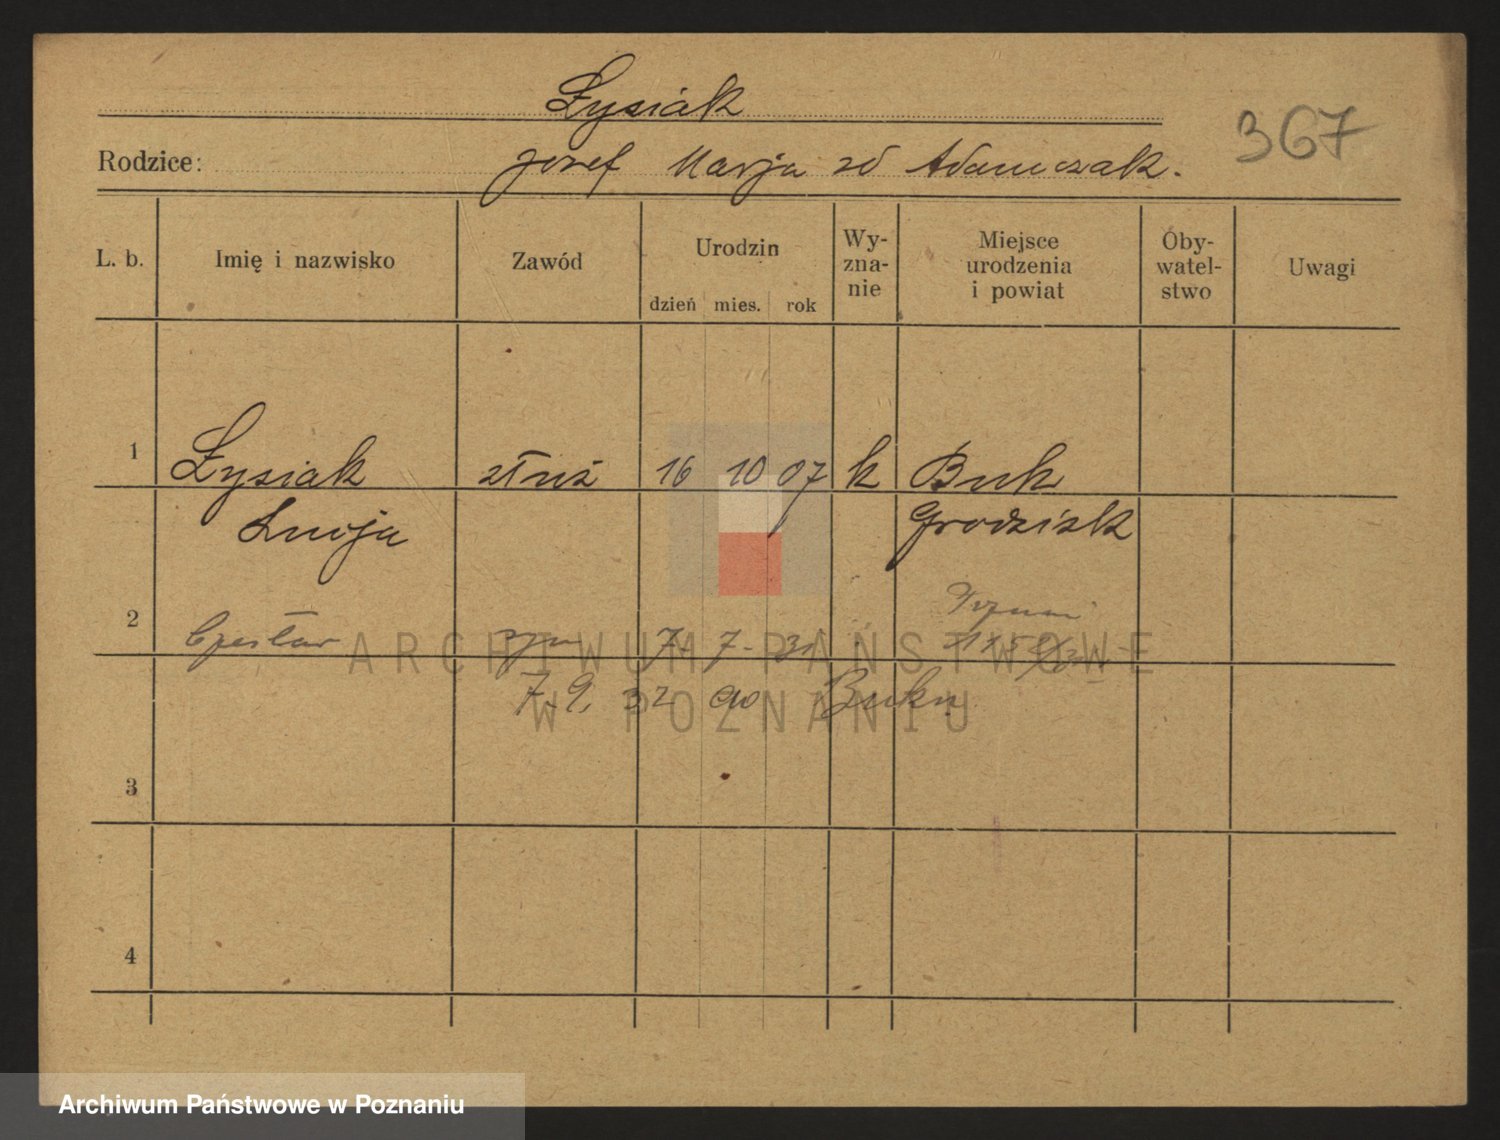 Łysiak
367
Rodzice: Józef Marja zd Adamczak.
L. b. Imię i nazwisko Zawód Urodzin dzień mies. rok Wy-zna-nie Miejsce urodzenia i powiat Oby-watel-stwo Uwagi
1 Łysiak służ 16 10 07 k Buk
Grodzisk
2 Czesław syn 7. 7. 31
7. 9. 32 do Buku
3
4
ARCHIWUM PAŃSTWOWE
W POZNANIU
Archiwum Państwowe w Poznaniu